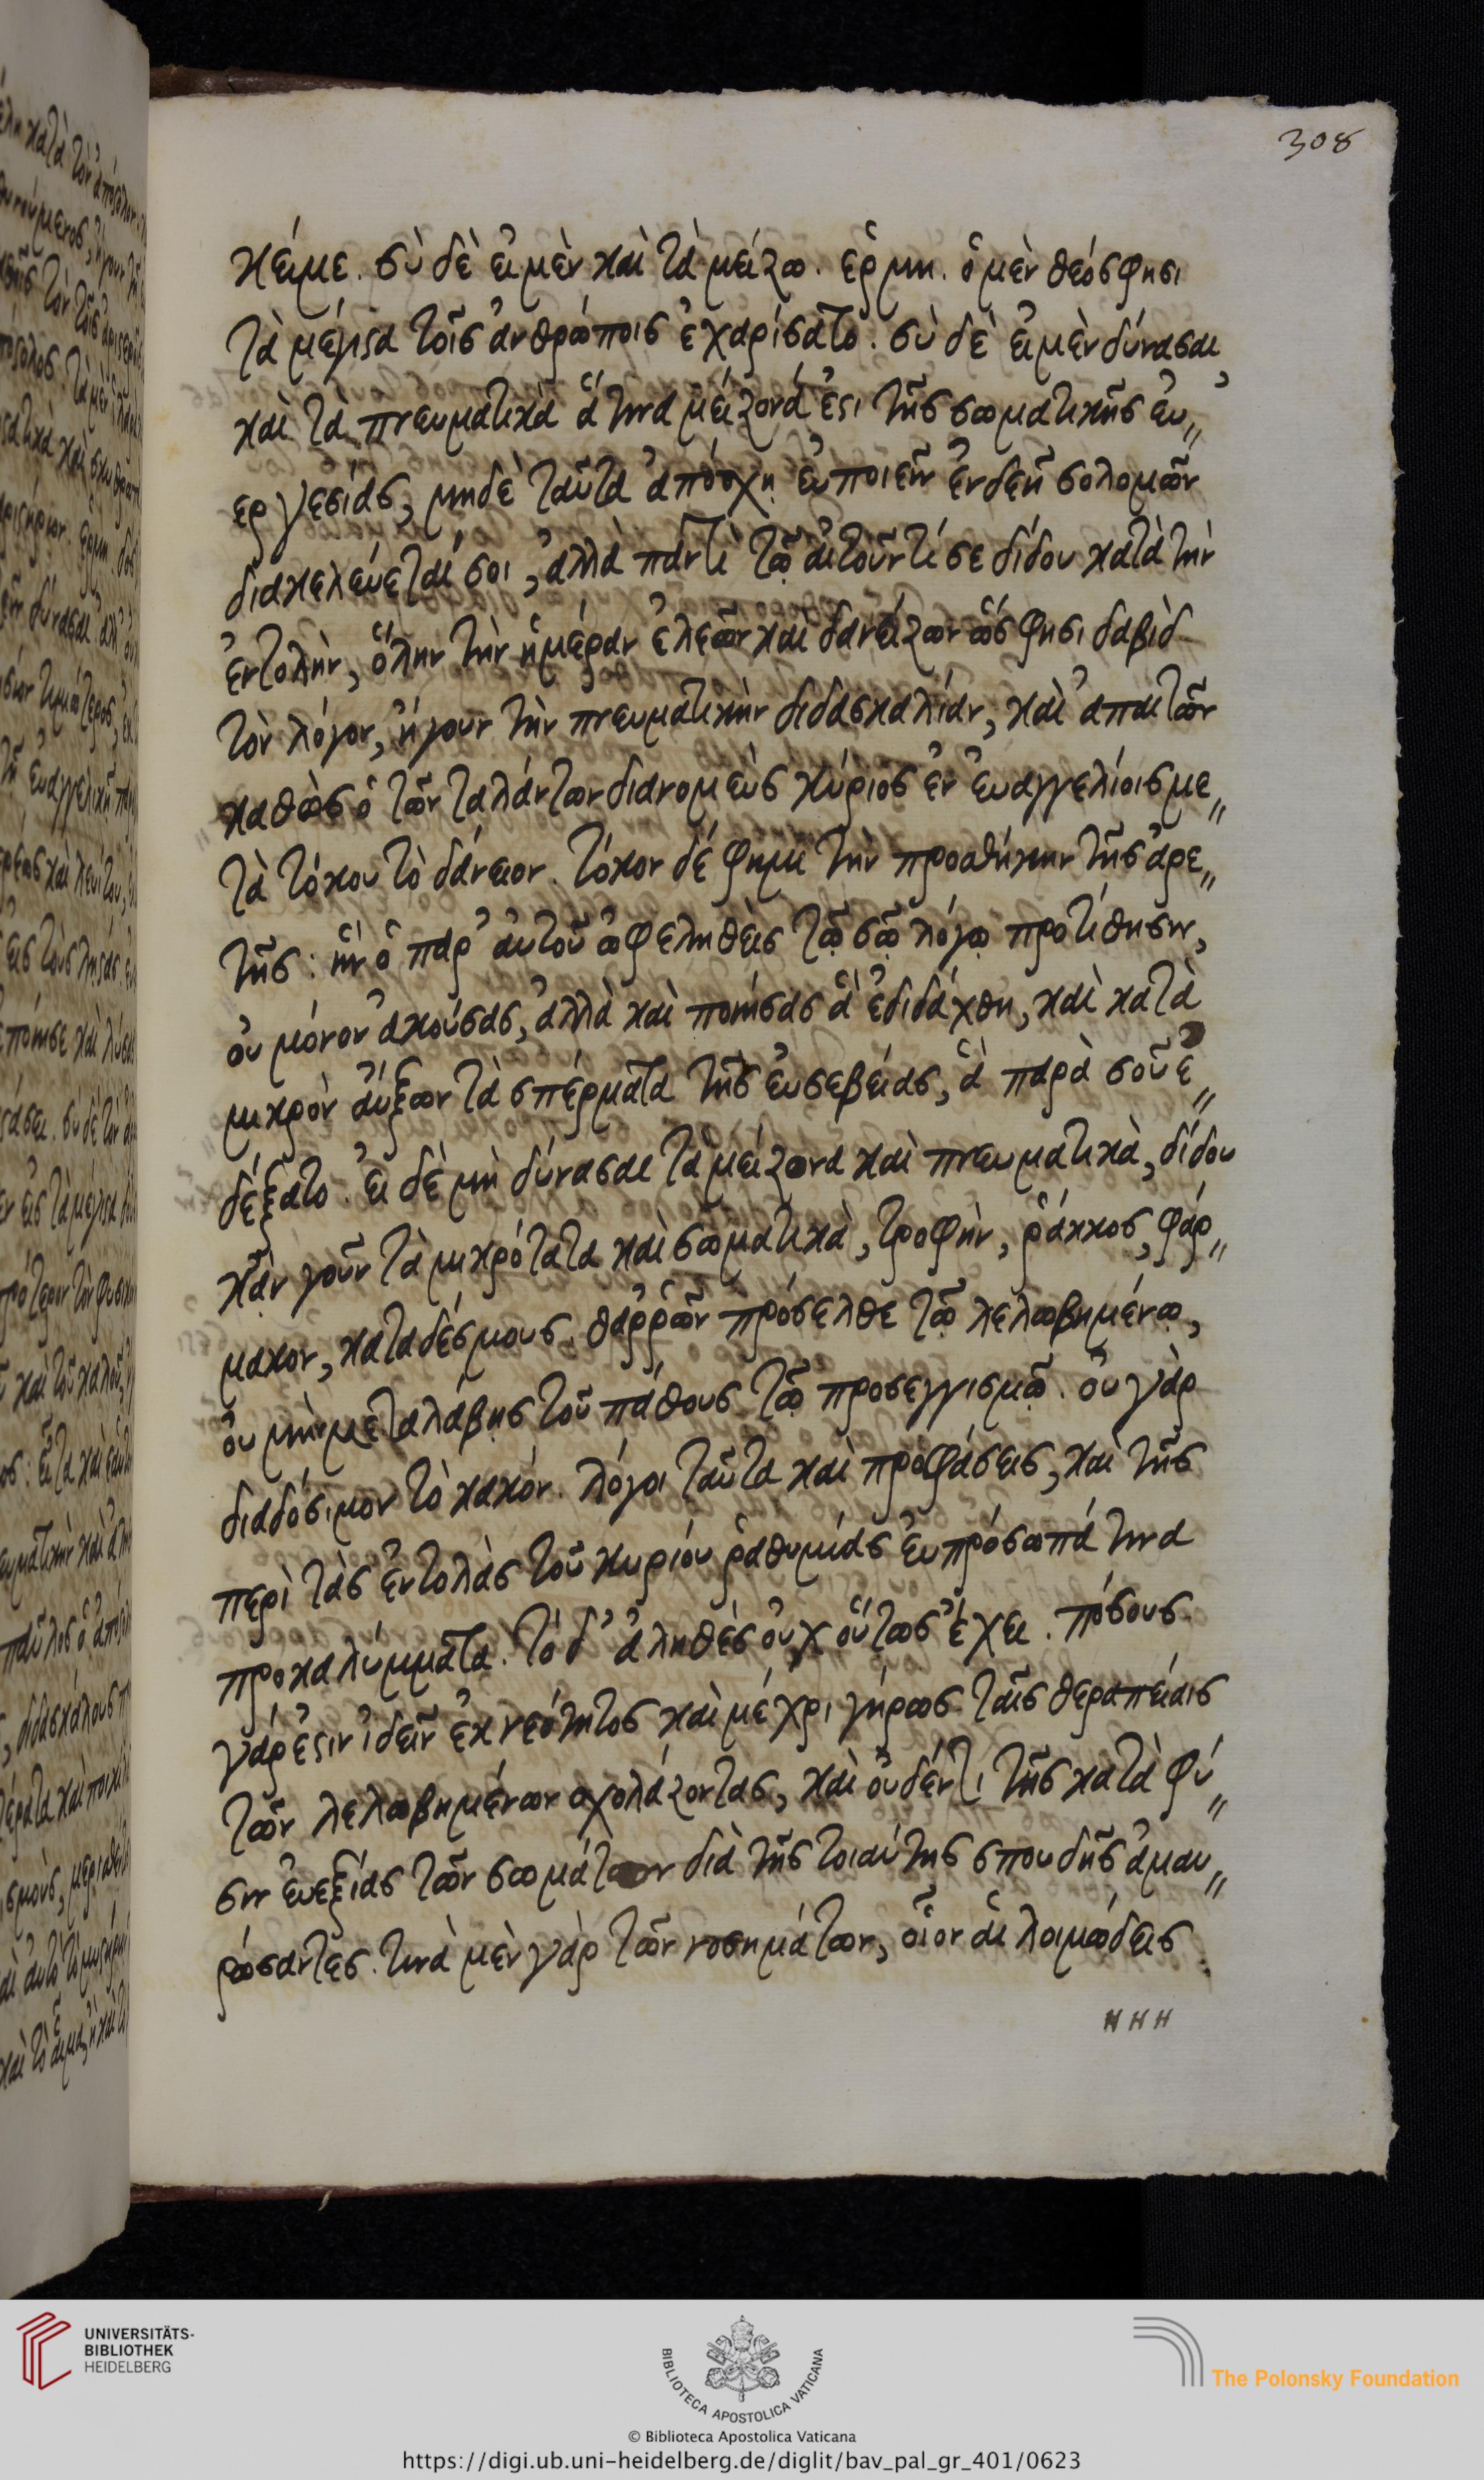 308
κείμε. σὺ δὲ εἰ μὲν καὶ τὰ μείζω. ἑρμη. ὁ μὲν θεός φησι
τὰ μέγιστα τοῖς ἀνθρώποις ἐχαρίσατο. σὺ δὲ εἰ μὲν δύνασαι
καὶ τὰ πνευματικὰ ἅ τινα μείζονά ἐστι τῆς σωματικῆς ευ〃
εργεσίας, μηδὲ ταῦτα ἀπόσχῃ εὖ ποιεῖν ἐνδεῆ σολομῶν
διακελεύεταί σοι, ἀλλὰ παντὶ τῷ αἰτοῦντί σε δίδου κατὰ τὴν
ἐντολὴν, ὅλην τὴν ἡμέραν ἐλεῶν καὶ δανείζων ὥς φησι δαβὶδ
τὸν λόγον, ἤγουν τὴν πνευματικὴν διδασκαλίαν, καὶ ἀπαιτῶν
καθὼς ὁ τῶν ταλάντων διανομεὺς κύριος ἐν εὐαγγελίοις με〃
τὰ τόκου τὸ δάνειον. τόκον δέ φημι τὴν προσθήκην τῆς ἀρε〃
τῆς: ἣν ὁ παρ' αὐτοῦ ὠφεληθεὶς τῷ σῷ λόγῳ προτίθησιν,
οὐ μόνον ἀκούσας, ἀλλὰ καὶ ποιήσας ἃ ἐδιδάχθη, καὶ κατὰ
μικρὸν αὔξων τὰ σπέρματα τῆς εὐσεβείας, ἃ παρὰ σοῦ ἐ〃
δέξατο. εἰ δὲ μὴ δύνασαι τὰ μείζονα καὶ πνευματικὰ, δίδου
κἂν γοῦν τὰ μικρότατα καὶ σωματικὰ, τροφὴν, ῥάκκος, φάρ〃
μακον, καταδέσμους. θαῤῥῶν πρόσελθε τῷ λελωβημένῳ,
οὐ μὴ μεταλάβῃς τοῦ πάθους τῷ προσεγγισμῷ. οὐ γὰρ
διαδόσιμον τὸ κακόν. λόγοι ταῦτα καὶ προφάσεις, καὶ τῆς
περὶ τὰς ἐντολὰς τοῦ κυρίου ῥαθυμίας εὐπρόσωπά τινα
προκαλύμματα. τὸ δ' ἀληθὲς οὐχ οὕτως ἔχει. πόσους
γάρ ἐστιν ἰδεῖν ἐκ νεότητος καὶ μέχρι γήρως ταῖς θεραπείαις
τῶν λελωβημένων σχολάζοντας, καὶ οὐδέν τι τῆς κατὰ φύ〃
σιν εὐεξίας τῶν σωμάτων διὰ τῆς τοιαύτης σπουδῆς ἀμαυ〃
ρώσαντες. τινὰ μὲν γὰρ τῶν νοσημάτων, οἷον αἱ λοιμώδεις
ΗΗΗ
UNIVERSITÄTS-
BIBLIOTHEK
HEIDELBERG
BIBLIOTECA APOSTOLICA VATICANA
The Polonsky Foundation
© Biblioteca Apostolica Vaticana
https://digi.ub.uni-heidelberg.de/diglit/bav_pal_gr_401/0623